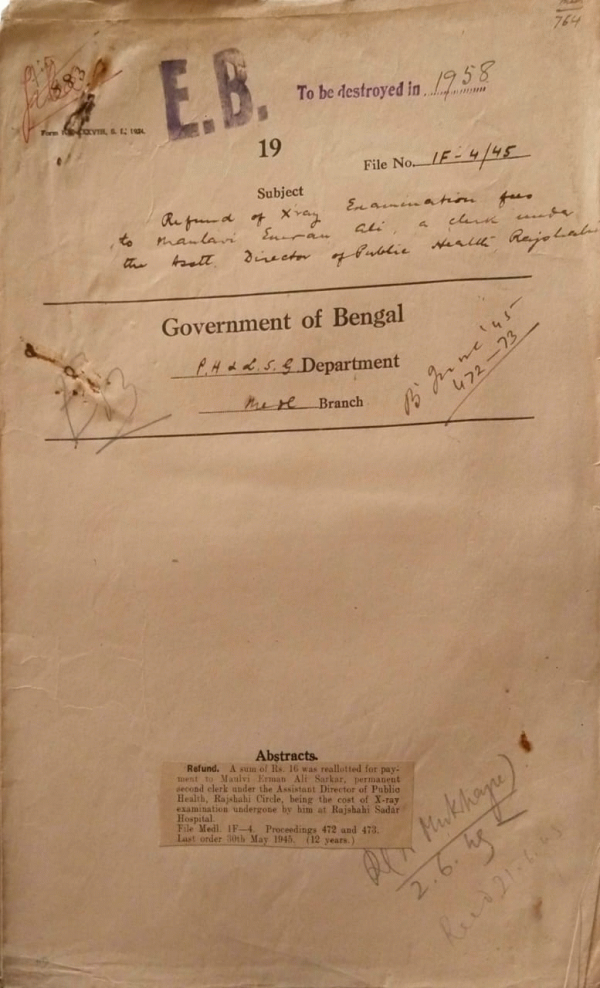 764
883
E.B.
To be destroyed in 1958
19
File No. 1F-4/45
Subject
Refund of X'ray Examination fees
to Maulavi Emran Ali, a clerk under
the Asstt. Director of Public Health, Rajshahi
Government of Bengal
P.H & L.S.G Department
Medl Branch
B' June '45
472-73
Abstracts.
Refund. A sum of Rs. 16 was reallotted for pay-
ment to Maulvi Erman Ali Sarkar, permanent
second clerk under the Assistant Director of Public
Health, Rajshahi Circle, being the cost of X-ray
examination undergone by him at Rajshahi Sadar
Hospital.
File Medl. 1F—4. Proceedings 472 and 473.
Last order 30th May 1945. (12 years.)
2.6.45